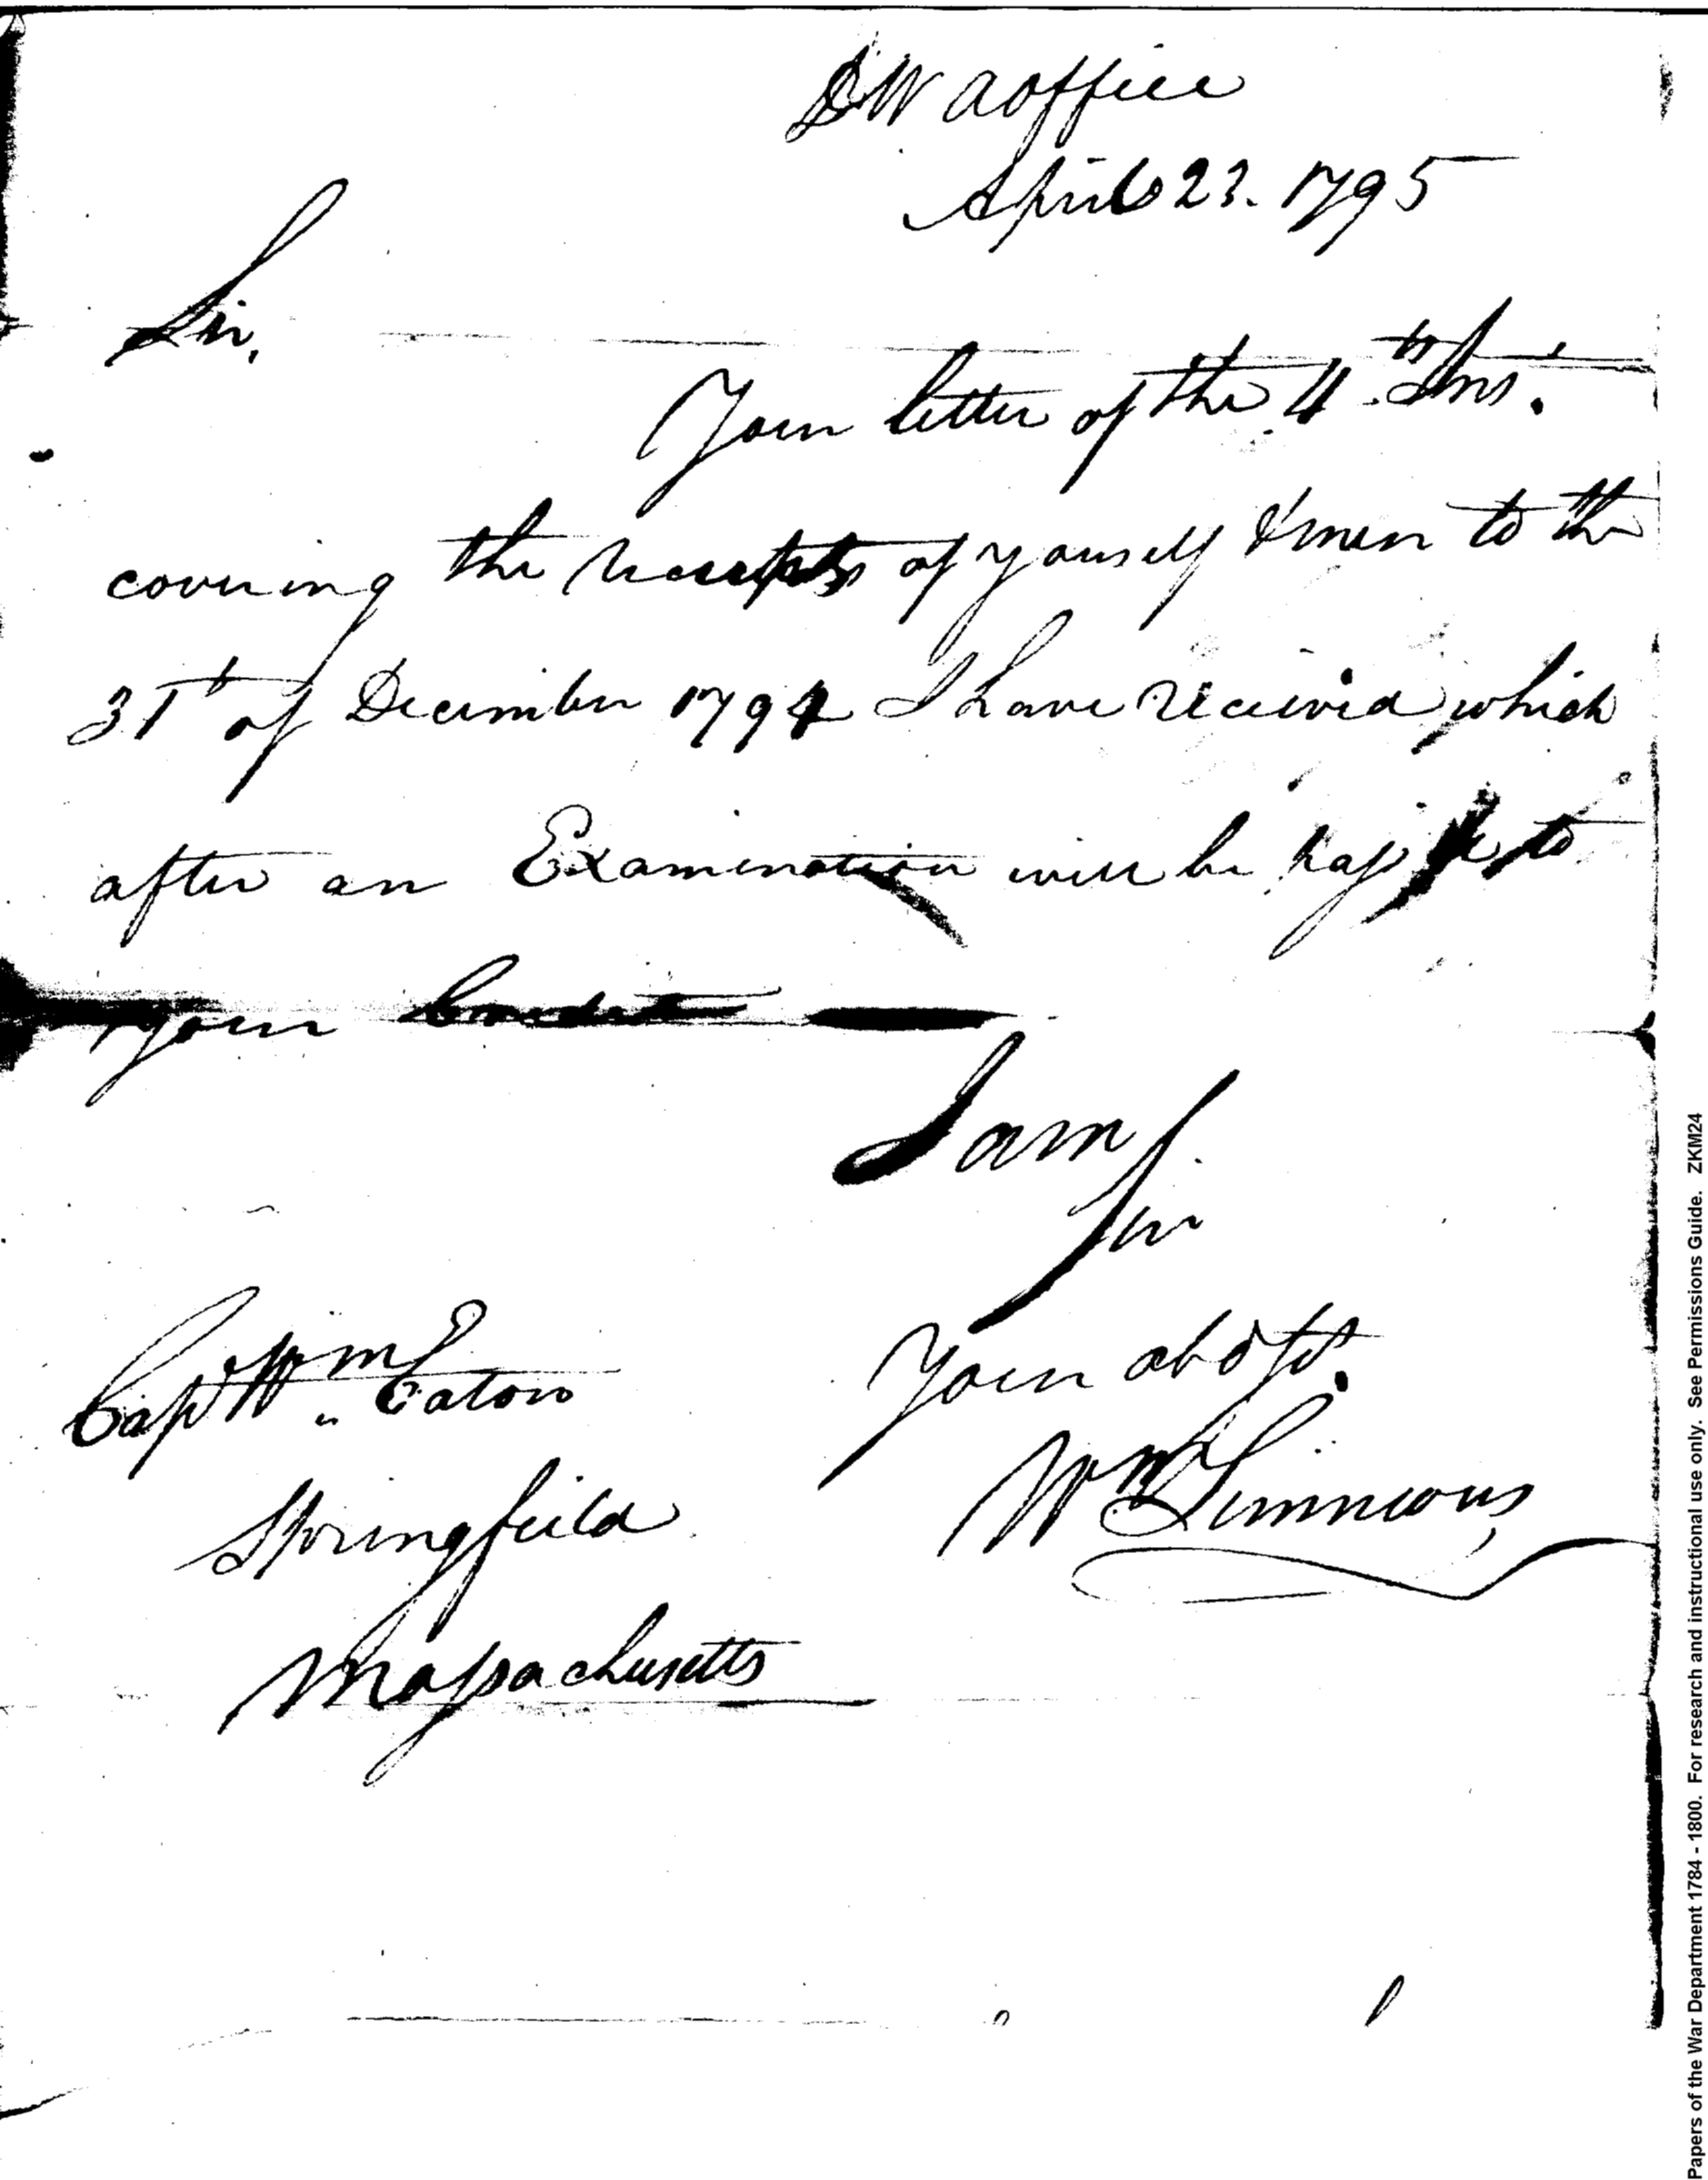 DW A office
April 23. 1795
Sir,
Your letter of the 11th Inst.
covering the receipts of yourself & men to the
31t of December 1794 I have received which
after an Examination will be to
your Credit
I am
Sir
Your ob. st.
Wm Simmons
Capt Wm Eaton
Springfield
Massachusetts
Papers of the War Department 1784 - 1800. For research and instructional use only. See Permissions Guide. ZKM24